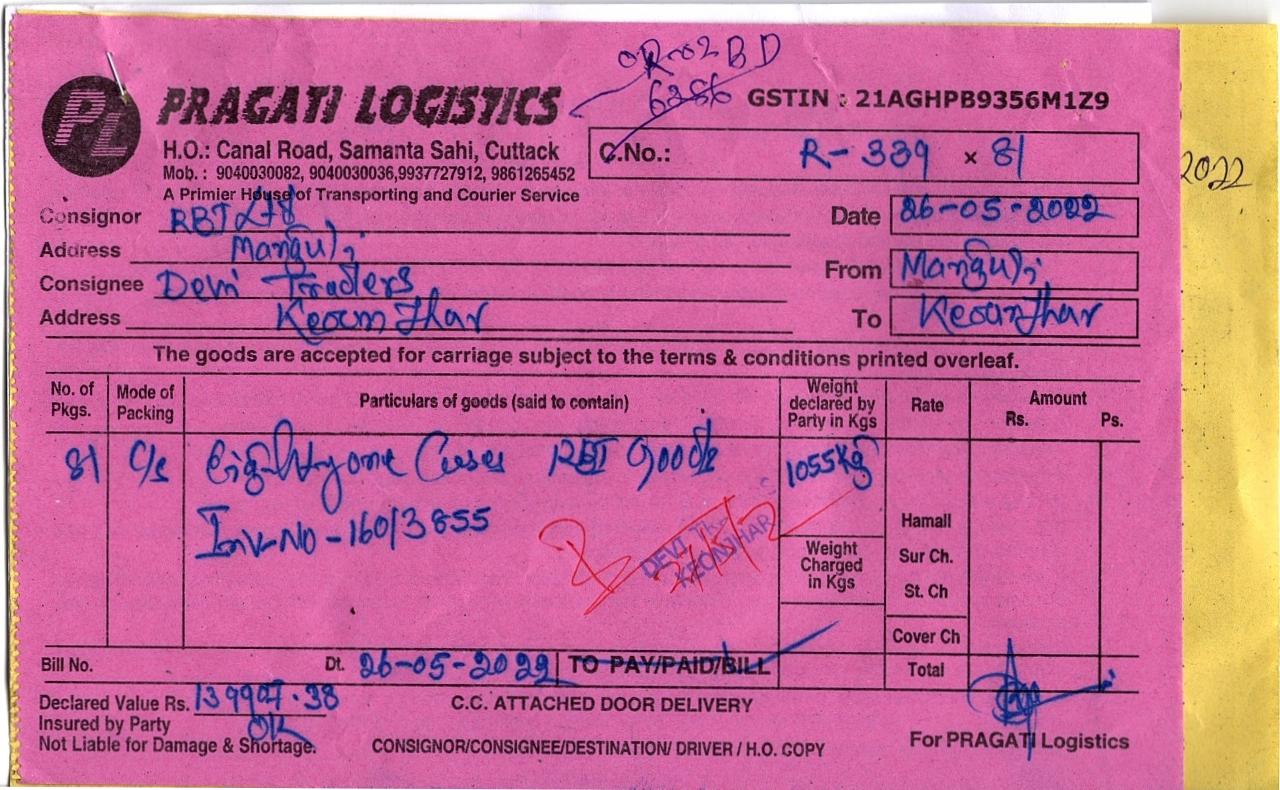 OR-02 BD
6286
PL PRAGATI LOGISTICS
GSTIN : 21AGHPB9356M1Z9
H.O.: Canal Road, Samanta Sahi, Cuttack
Mob. : 9040030082, 9040030036,9937727912, 9861265452
A Primier House of Transporting and Courier Service
C.No.: R-339 x 81
2022
Consignor RBI Ltd
Date 26-05-2022
Address Manguli
From Manguli
Consignee Devi Traders
Address Keounjhar
To Keounjhar
The goods are accepted for carriage subject to the terms & conditions printed overleaf.
No. of Pkgs. Mode of Packing Particulars of goods (said to contain) Weight declared by Party in Kgs Rate Amount Rs. Ps.
81 C/s Eightyone Cases RBI Goods 1055Kg
Inv-No-160/3855
DEVI
KEONJHAR
Hamali
Weight Charged in Kgs
Sur Ch.
St. Ch
Cover Ch
Bill No. Dt. 26-05-2022 TO PAY/PAID/BILL Total
Declared Value Rs. 139997.38 C.C. ATTACHED DOOR DELIVERY
Insured by Party OK
Not Liable for Damage & Shortage. CONSIGNOR/CONSIGNEE/DESTINATION/ DRIVER / H.O. COPY For PRAGATI Logistics